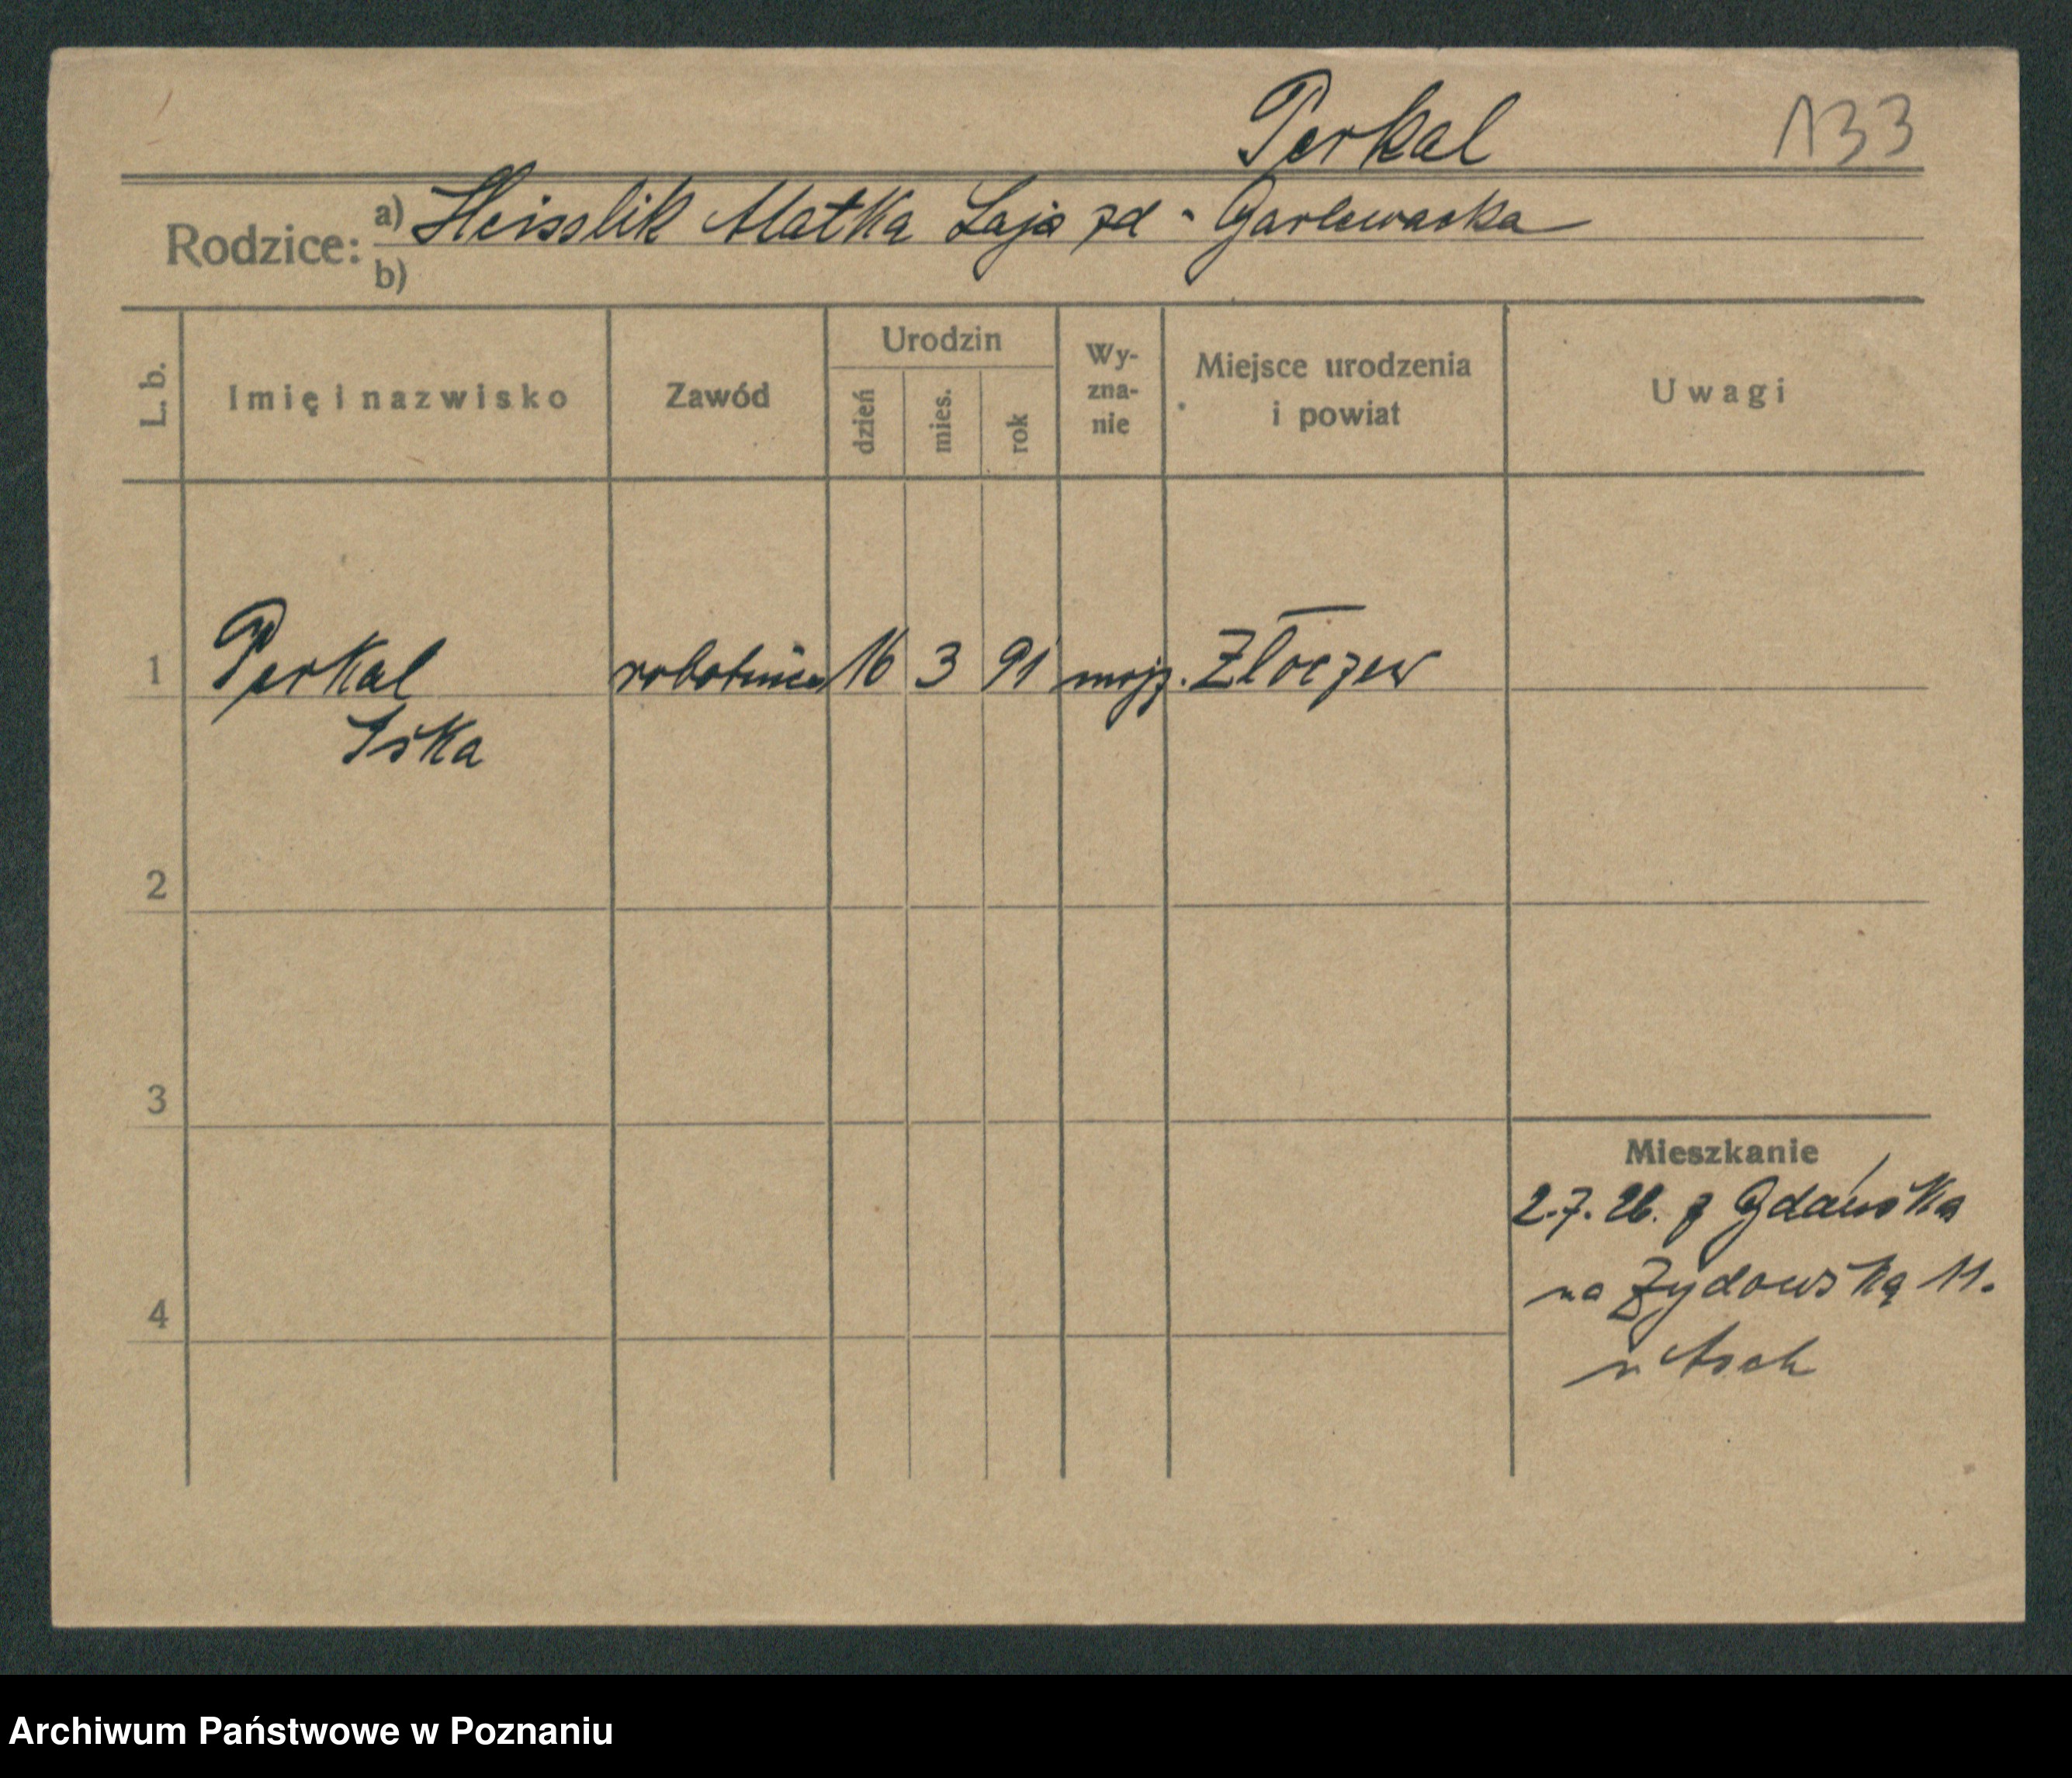 Perkal 133
Rodzice: a) Heisslik Matka Laja zd - Garlewacka
b)
L. b. Imię i nazwisko Zawód Urodzin dzień mies. rok Wyznanie Miejsce urodzenia i powiat Uwagi
1 Perkal robotnica 16 3 91 mojż. Złoczew
Iśka
2
3
Mieszkanie
2.7.26. z Gdańska
4 na Żydowską 11.
u Asch
Archiwum Państwowe w Poznaniu